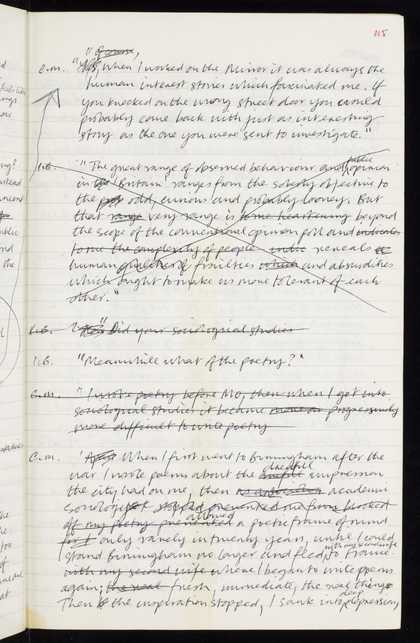 115
"Of course,
C.M. "Yes, when I worked on the Mirror it was always the
human interest stories which fascinated me. If
you knocked on the wrong street door you would
probably come back with just as interesting
story as the one you were sent to investigate."
I.B. "The great range of observed behaviour and public opinion
in 'Britain' ranges from the soberly objective to
the odd, curious and probably looney. But
that range very range is some heartening beyond
the scope of the conventional opinion poll and indicates
to me the complexity of people reveals
human qualities of frailties which and absurdities
which ought to make us more tolerant of each
other."
Did your sociological studies
I.B. "Meanwhile what of the poetry?"
C.M. "I wrote poetry before MO, then when I got into
sociological studies it became more or progressively
more difficult to write poetry
C.M. 'When I first went to Birmingham after the
war I wrote poems about the dreadful impression
the city had on me, then academic
sociology allowed a poetic frame of mind
only rarely in twenty years, until I could
stand Birmingham no longer and fled, with my second wife to France.
with my second wife where I began to write poems
again; the real fresh, immediate, the real thing.
Then the inspiration stopped, I sank into deep depression,